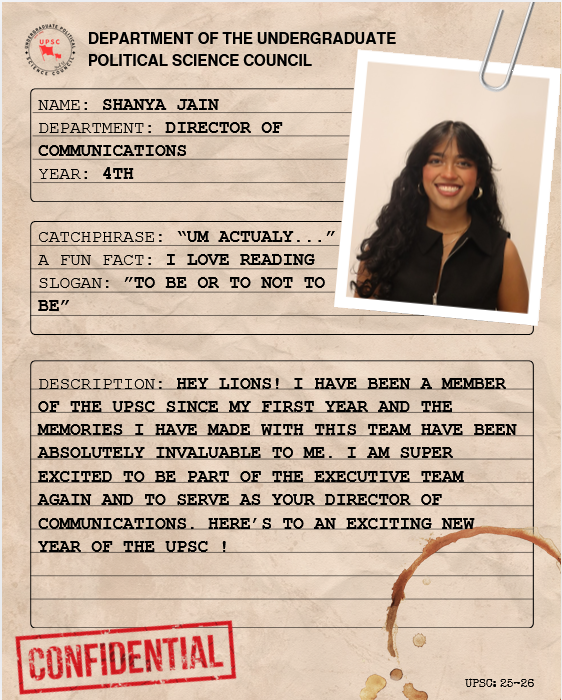 DEPARTMENT OF THE UNDERGRADUATE
POLITICAL SCIENCE COUNCIL
UNDERGRADUATE POLITICAL
UPSC
SCIENCE COUNCIL
NAME: SHANYA JAIN
DEPARTMENT: DIRECTOR OF
COMMUNICATIONS
YEAR: 4TH
CATCHPHRASE: “UM ACTUALY...”
A FUN FACT: I LOVE READING
SLOGAN: ”TO BE OR TO NOT TO
BE”
DESCRIPTION: HEY LIONS! I HAVE BEEN A MEMBER
OF THE UPSC SINCE MY FIRST YEAR AND THE
MEMORIES I HAVE MADE WITH THIS TEAM HAVE BEEN
ABSOLUTELY INVALUABLE TO ME. I AM SUPER
EXCITED TO BE PART OF THE EXECUTIVE TEAM
AGAIN AND TO SERVE AS YOUR DIRECTOR OF
COMMUNICATIONS. HERE’S TO AN EXCITING NEW
YEAR OF THE UPSC !
CONFIDENTIAL
UPSC: 25-26